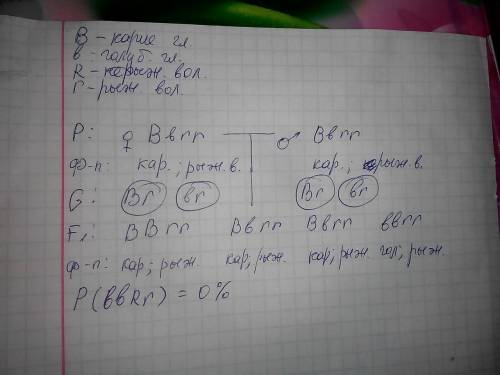 В – карие гл.
в – голуб. гл.
R – нерыж. вол.
r – рыж. вол.
P: ♀ Ввrr ♂ Ввrr
Ф-п: кар.; рыж. в. кар.; рыж. в.
G: Вr вr Вr вr
F₁: ВВrr Ввrr Ввrr ввrr
ф-п: кар; рыж. кар; рыж. кар; рыж. гол; рыж.
P(ввRr) = 0%